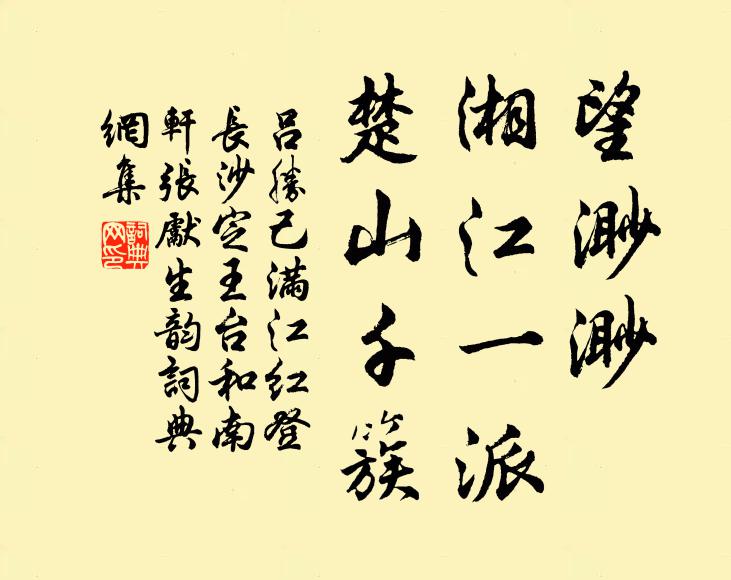 望渺渺
湘江一派
楚山千簇
呂勝己滿江紅登
長沙定王台和南
軒張獻生韵詞典
網集
詞典
网印